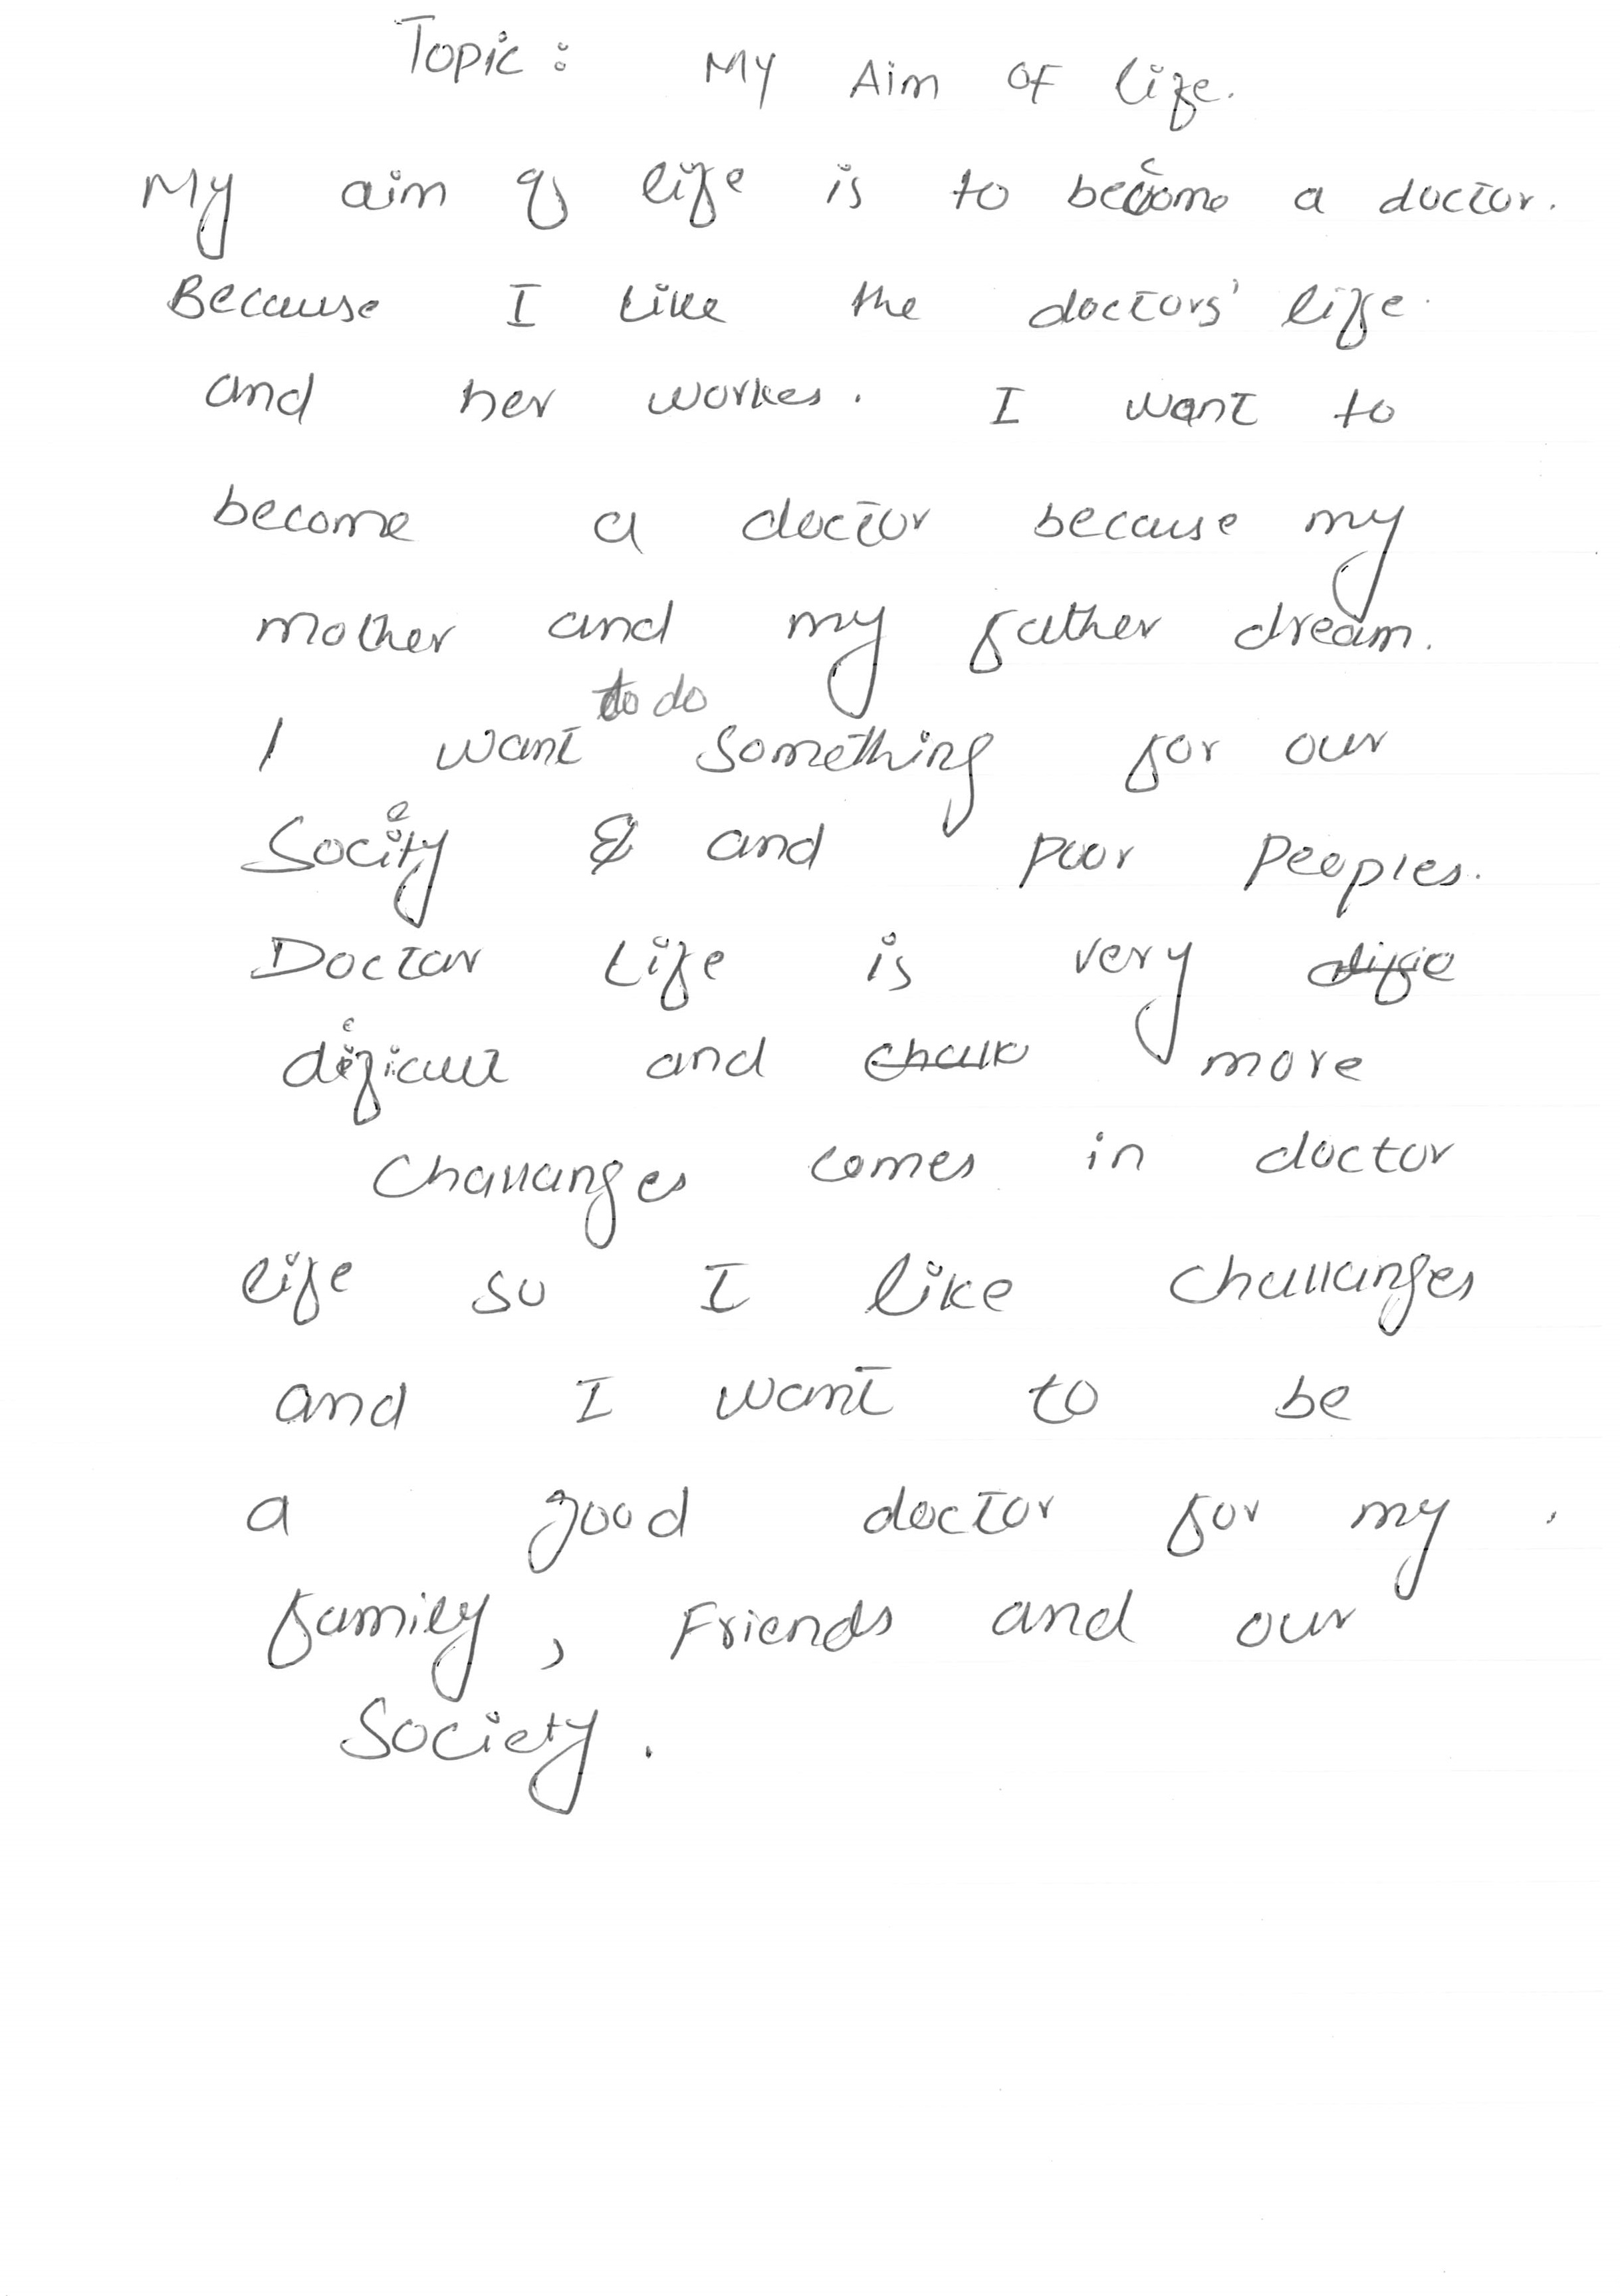 Topic: My Aim of life.
My aim of life is to become a doctor.
Because I like the doctors' life
and her workes. I want to
become a doctor because my
mother and my father dream.
I want to do something for our
Society and poor peoples.
Doctor Life is very
dificult and more
Challanges comes in doctor
life so I like challanges
and I want to be
a good doctor for my
family, Friends and our
Society.